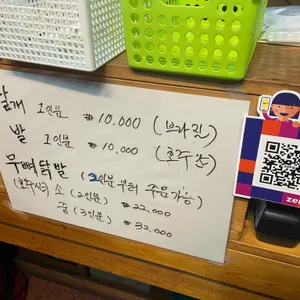 날개 1인분 ₩10.000 (브라질)
발 1인분 ₩10.000 (호주산)
무뼈닭발 (2인분부터 주문가능)
소 (2인분) ₩22,000
중 (3인분) ₩32.000